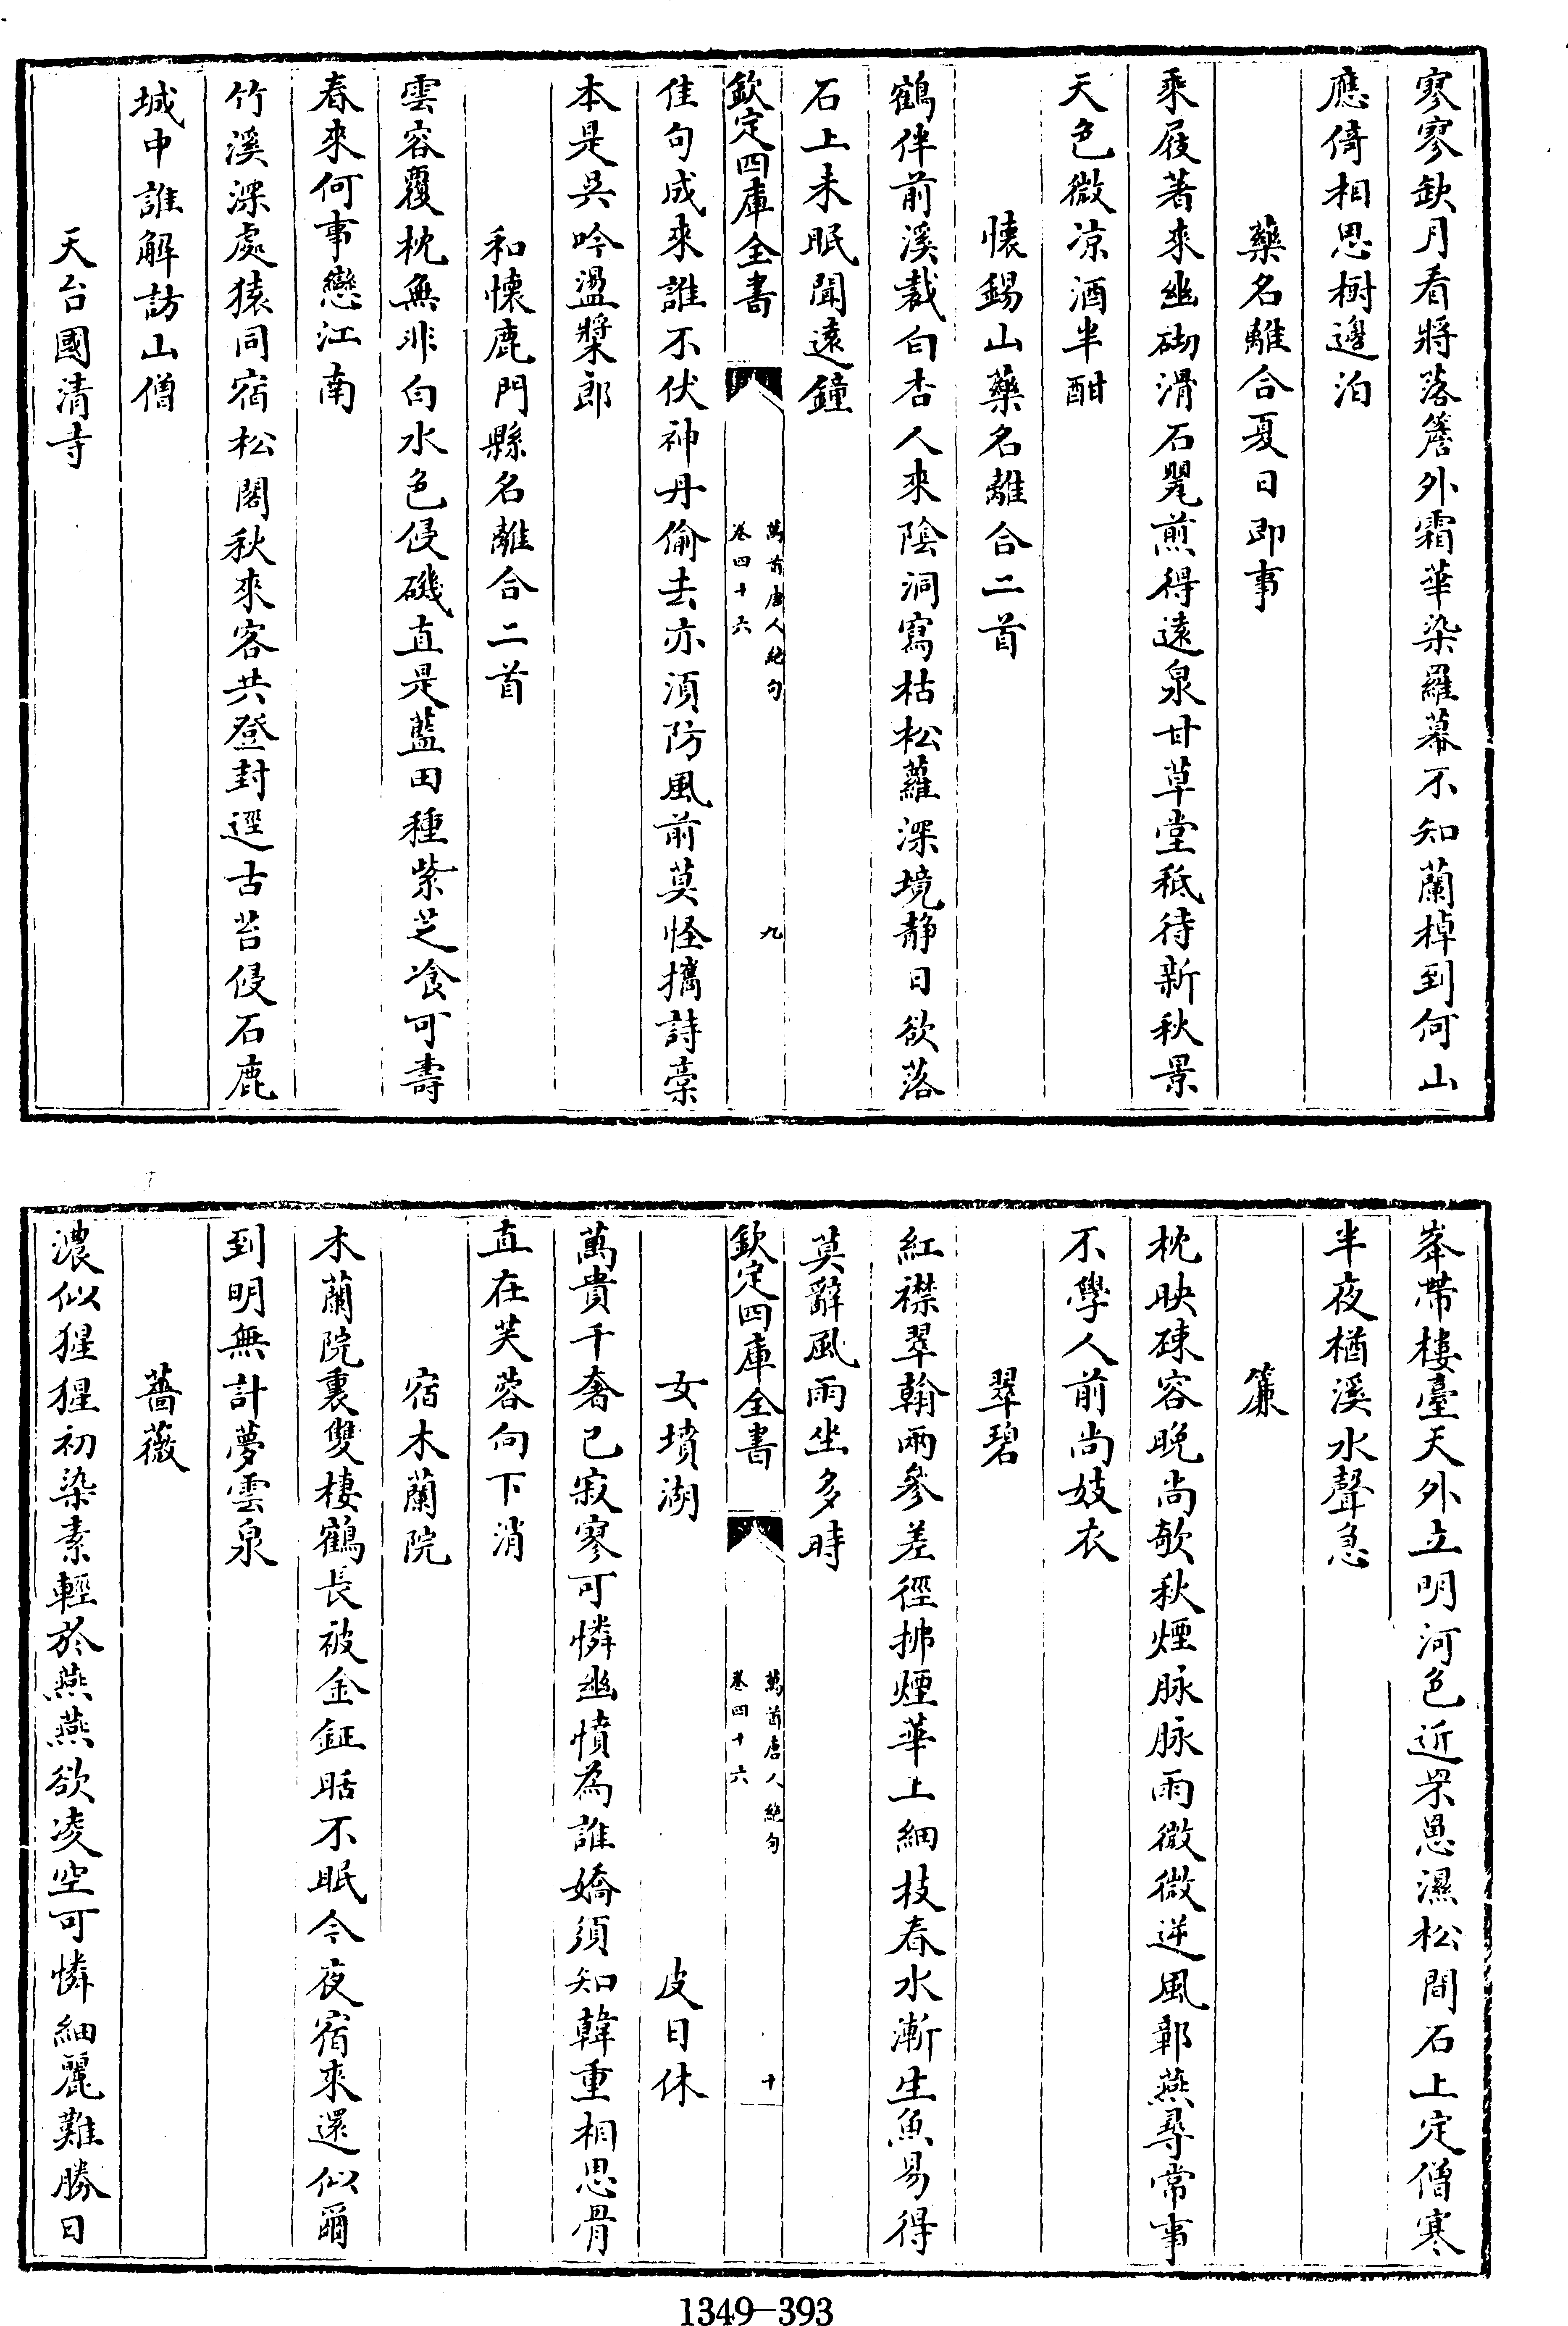 寥寥缺月看將落簷外霜華染羅幕不知蘭棹到何山
應倚相思樹邊泊
藥名離合夏日即事
乘屐著來幽砌滑石甖煎得遠泉甘草堂秪待新秋景
天色微涼酒半酣
懷錫山藥名離合二首
鶴伴前溪栽白杏人來陰洞寫枯松蘿深境静日欲落
石上未眠聞遠鐘
欽定四庫全書
萬首唐人絶句
卷四十六
九
佳句成來誰不伏神丹偷去亦須防風前莫怪攜詩槀
本是吳吟盪槳郎
和懷鹿門縣名離合二首
雲容覆枕無非白水色侵磯直是藍田種紫芝飡可壽
春來何事戀江南
竹溪深處猿同宿松閣秋來客共登封逕古苔侵石鹿
城中誰解訪山僧
天台國清寺
峯帶樓臺天外立明河色近罘罳濕松間石上定僧寒
半夜楢溪水聲急
簾
枕映疎容晚尚欹秋煙脉脉雨微微逆風鄣燕尋常事
不學人前尚妓衣
翠碧
紅襟翠翰兩參差徑拂煙華上細枝春水漸生魚易得
莫辭風雨坐多時
欽定四庫全書
萬首唐人絶句
卷四十六
十
女墳湖 皮日休
萬貴千奢已寂寥可憐幽憤為誰嬌須知韓重相思骨
直在芙蓉向下消
宿木蘭院
木蘭院裏雙棲鶴長被金鉦聒不眠今夜宿來還似爾
到明無計夢雲泉
薔薇
濃似猩猩初染素輕於燕燕欲凌空可憐細麗難勝日
1349-393